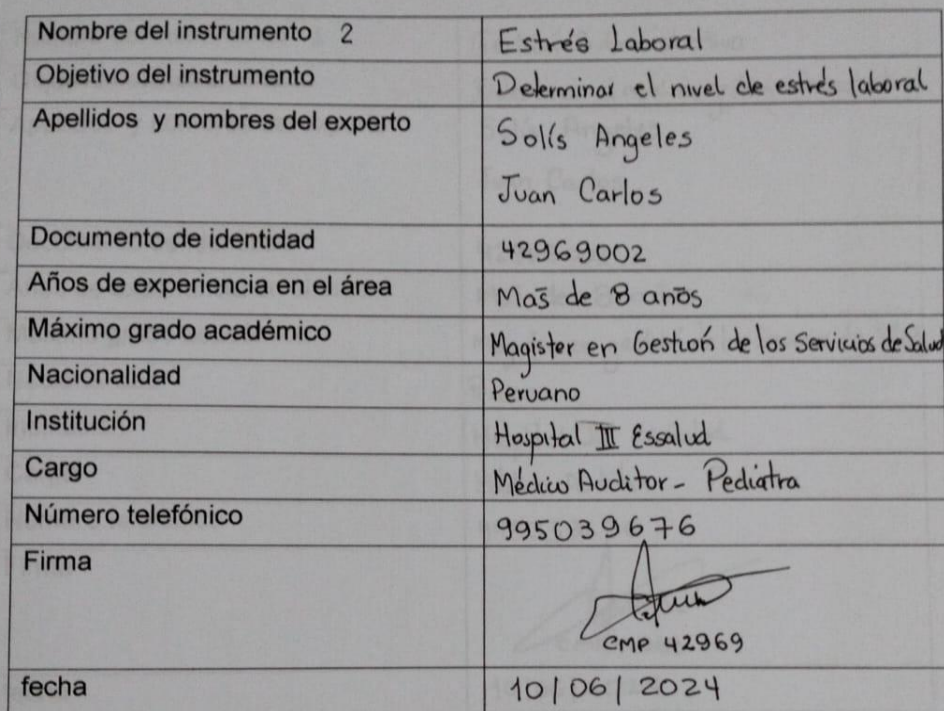 Nombre del instrumento 2 Estrés Laboral
Objetivo del instrumento Determinar el nivel de estrés laboral
Apellidos y nombres del experto Solís Angeles
Juan Carlos
Documento de identidad 42969002
Años de experiencia en el área Más de 8 años
Máximo grado académico Magister en Gestión de los Servicios de Salud
Nacionalidad Peruano
Institución Hospital III Essalud
Cargo Médico Auditor - Pediatra
Número telefónico 995039676
Firma
CMP 42969
fecha 10/06/2024